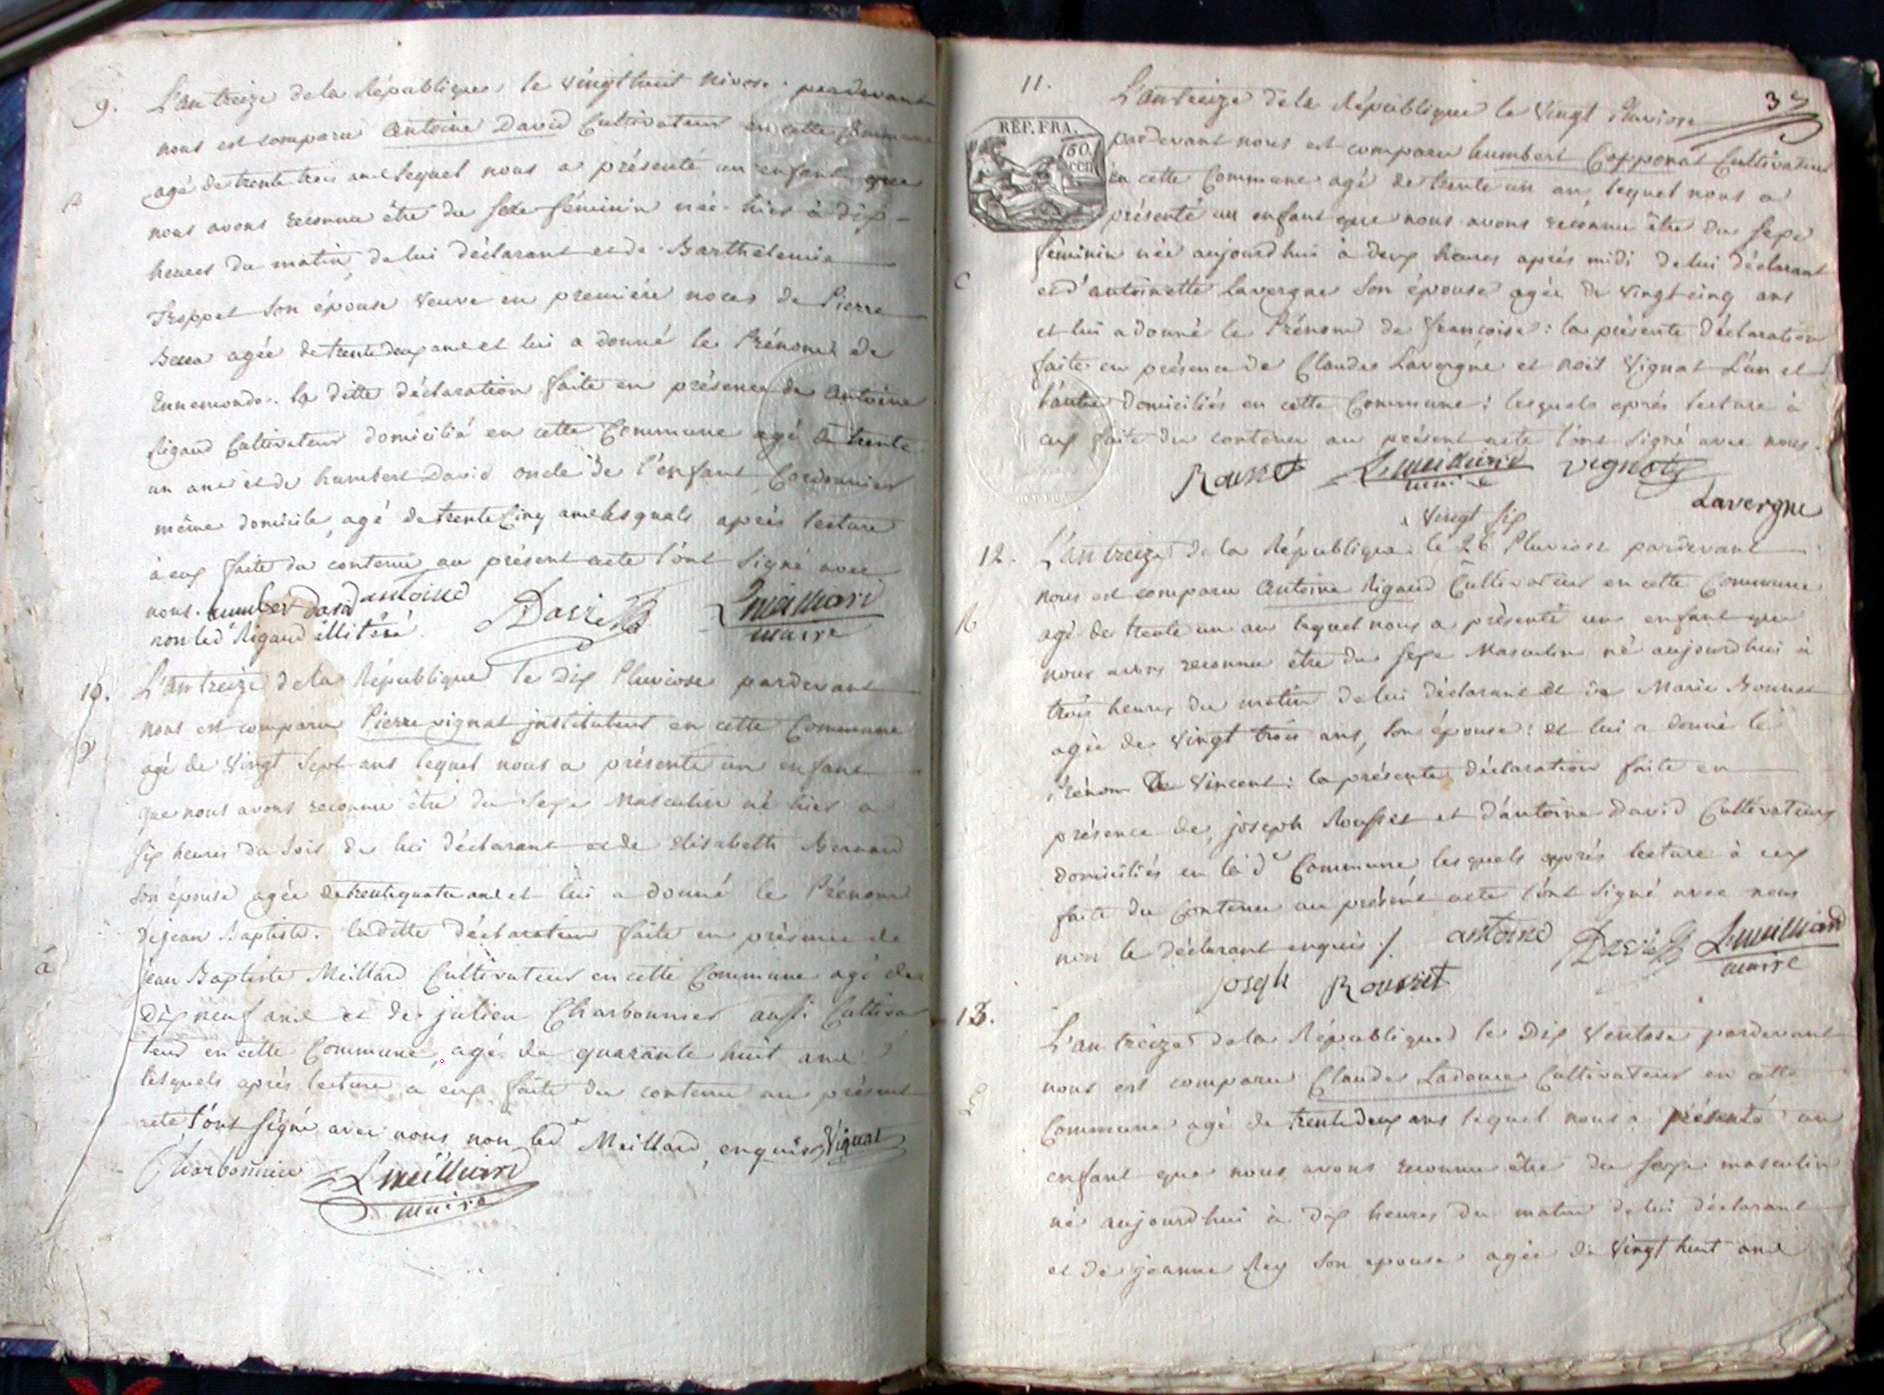 9.
L'an treize de la République, le vingt huit Nivose. pardevant
nous est comparu Antoine David Cultivateur en cette Commune
agé de trente trois ans lequel nous a présenté un enfant que
nous avons reconnu être du sexe féminin née hier à dix
heures du matin, de lui déclarant et de Barthelemie
Troppet son épouse veuve en première noces de Pierre
agée de trente deux ans et lui a donné le Prénom de
Ennemonde. la ditte déclaration faite en présence de Antoine
Rigaud Cultivateur domicilié en cette Commune agé de trente
un ans et de humbert David oncle de l'enfant, Cordonnier
même domicile, agé de trente Cinq ans lesquels après lecture
à eux faite du contenu au présent acte l'ont signé avec
nous. humber david antoine David Lmeilliard
non led Rigaud illitéré. maire
10.
L'an treize de la République le dix Pluviose pardevant
nous est comparu Pierre vignat instituteur en cette Commune
agé de vingt sept ans lequel nous a présenté un enfant
que nous avons reconnu être du sexe Masculin né hier a
six heures du soir de lui déclarant et de Elisabeth Bernard
son épouse agée de trente quatre ans et lui a donné le Prénom
de jean Baptiste. la ditte déclaration faite en présence de
jean Baptiste Meillard Cultivateur en cette Commune agé de
dix neuf ans et de julien Charbonnier aussi Cultiva
teur en cette Commune, agé de quarante huit ans
lesquels après lecture a eux faite du contenu au présent
acte l'ont signé avec nous non led Meillard, enquis, Vignat
Charbonnier Lmeilliard
maire
11.
37
L'an treize de la République le vingt Pluviose
REP. FRA.
50 cent
pardevant nous est comparu humbert Copponat Cultivateur
en cette Commune agé de trente un an, lequel nous a
présenté un enfant que nous avons reconnu être du sexe
féminin née aujourdhui à deux heures après midi de lui déclarant
et d'antoinette Lavergne son épouse agée de vingt cinq ans
et lui a donné le Prénom de françoise: la présente déclaration
faite en présence de Claude Lavergne et noit Vignat L'un et
l'autre domiciliés en cette Commune: lesquels après lecture à
eux faite du contenu au présent acte l'ont signé avec nous.
Rousset Lmeilliard vignat
maire Lavergne
vingt six
12.
L'an treize de la République le 26 Pluviose pardevant
nous est comparu Antoine Rigaud Cultivateur en cette Commune
agé de trente un an lequel nous a présenté un enfant que
nous avons reconnu être du sexe Masculin né aujourdhui à
trois heures du matin de lui déclarant et de Marie Bonnet
agée de vingt trois ans, son épouse: et lui a donné le
Prénom De Vincent: la présente déclaration faite en
présence de joseph Rousset et d'antoine David Cultivateurs
domiciliés en la de Commune, lesquels après lecture à eux
faite du contenu au présent acte l'ont signé avec nous
non le déclarant enquis ./. antoine David Lmeilliard
joseph Rousset maire
13.
L'an treize de la République le dix Ventose pardevant
nous est comparu Claude Ladous Cultivateur en cette
Commune agé de trente deux ans lequel nous a présenté un
enfant que nous avons reconnu être du sexe masculin
né aujourdhui à dix heures du matin de lui déclarant
et de jeanne Rey son epouse agée de vingt huit ans